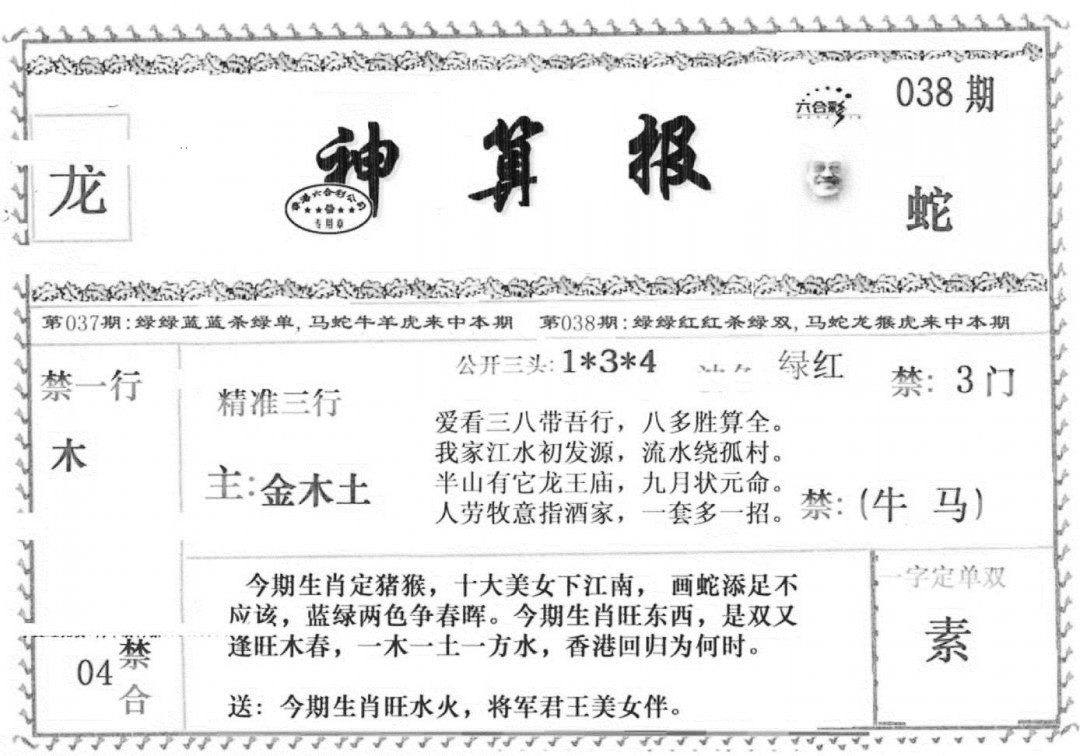 038期
六合彩
神算报
龙
香港六合彩公司
专用章
蛇
第037期:绿绿蓝蓝杀绿单,马蛇牛羊虎来中本期 第038期:绿绿红红杀绿双,马蛇龙猴虎来中本期
禁一行
木
精准三行
主:金木土
公开三头:1*3*4
绿红
禁:3门
爱看三八带吾行，八多胜算全。
我家江水初发源，流水绕孤村。
半山有它龙王庙，九月状元命。
人劳牧意指酒家，一套多一招。
禁:(牛 马)
今期生肖定猪猴，十大美女下江南， 画蛇添足不
应该，蓝绿两色争春晖。今期生肖旺东西，是双又
逢旺木春，一木一土一方水，香港回归为何时。
送：今期生肖旺水火，将军君王美女伴。
04
禁合
一字定单双
素